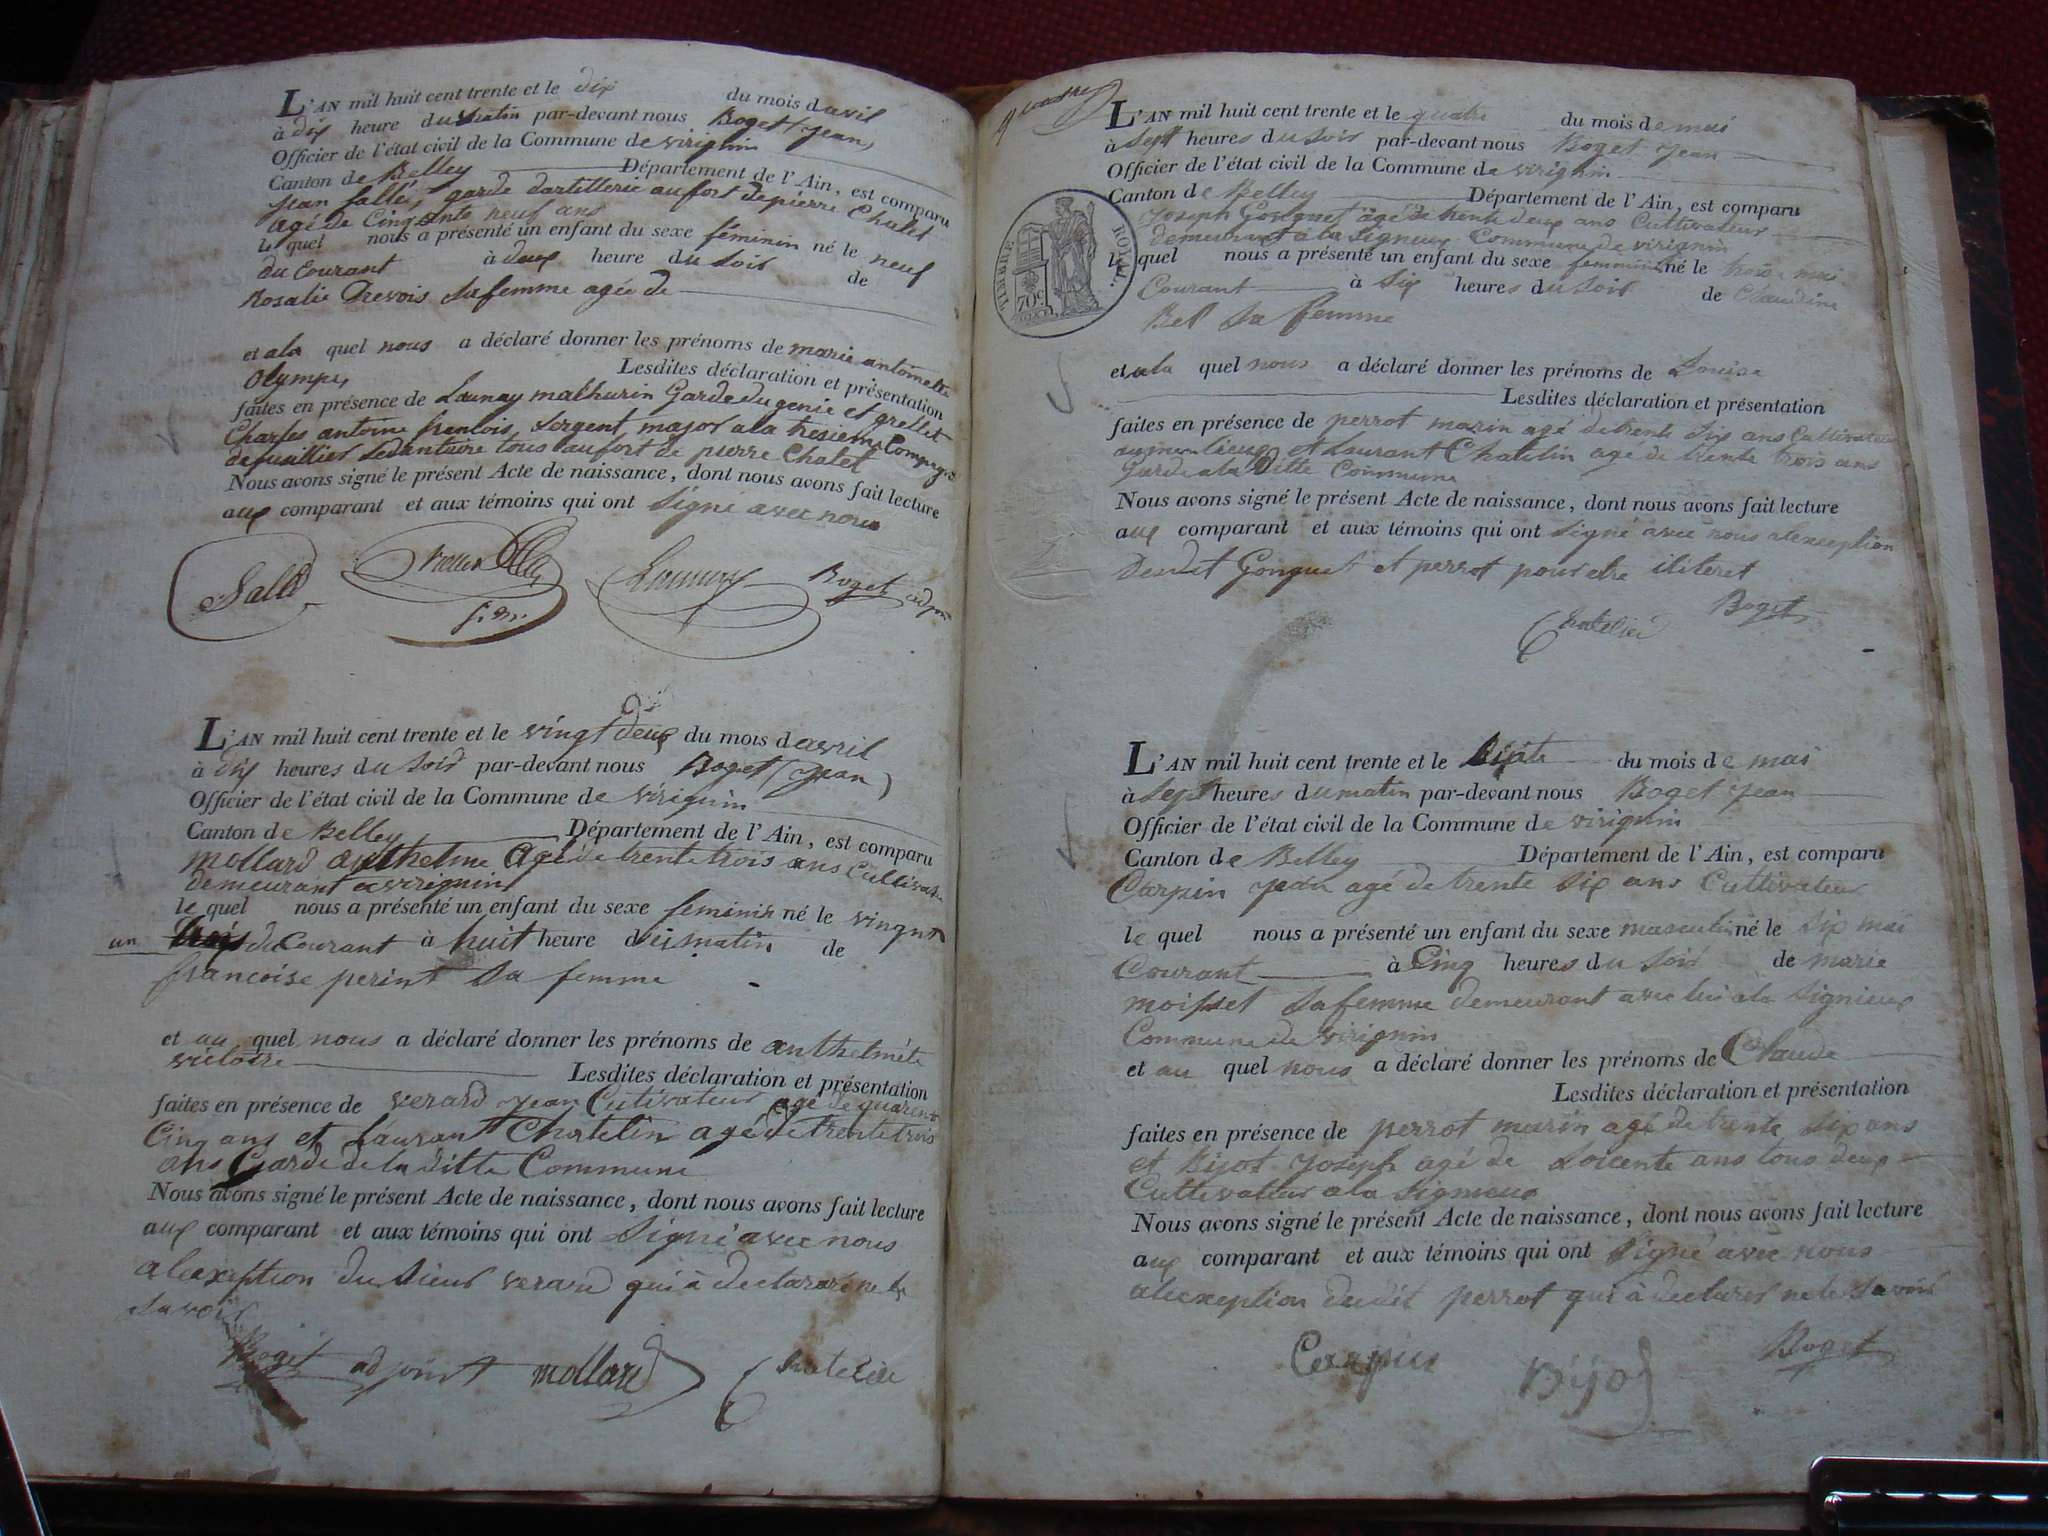 L'AN mil huit cent trente et le dix du mois d avril
à dix heure du matin par-devant nous Boget (jean)
Officier de l'état civil de la Commune de virignin
Canton de Belley Département de l'Ain, est comparu
jean sallé, garde dartillerie au fort de pierre Chalet
agé de Cinquante neuf ans
le quel nous a présenté un enfant du sexe féminin né le neuf
du Courant à deux heure du soir de
Rosalie Drevois sa femme agée de
et a la quel nous a déclaré donner les prénoms de marie antoinette
olympe, Lesdites déclaration et présentation
faites en présence de Launay mathurin Garde du genie et grellet
Charles antoine frenlois, sergent major a la tresieme Compagnie
de fusillier sedentaire tous au fort de pierre Chalet
Nous avons signé le présent Acte de naissance, dont nous avons fait lecture
aux comparant et aux témoins qui ont signé avec nous
Sallé
Launay
Boget adjoint
L'AN mil huit cent trente et le vingt deux du mois d avril
à dix heures du soir par-devant nous Boget (jean)
Officier de l'état civil de la Commune de virignin
Canton de Belley Département de l'Ain, est comparu
mollard anthelme agé de trente trois ans Cultivateur
demeurant a virignin
le quel nous a présenté un enfant du sexe feminin né le vingt
un du Courant à huit heure du matin de
francoise perint sa femme
et au quel nous a déclaré donner les prénoms de anthelmete
victoire Lesdites déclaration et présentation
faites en présence de verard jean Cutivateur agé de quarente
Cinq ans et Laurant Chatelin agé de trente trois
ans Garde de la ditte Commune
Nous avons signé le présent Acte de naissance, dont nous avons fait lecture
aux comparant et aux témoins qui ont signé avec nous
a lexeption du sieur verard qui à declararé ne le
savoir
Boget adjoint mollard Chatelin
TIMBRE ROYAL
70c
L'AN mil huit cent trente et le quatre du mois de mai
à sept heures du soir par-devant nous Boget jean
Officier de l'état civil de la Commune de virignin
Canton de Belley Département de l'Ain, est comparu
Joseph Gonguet agé de trente deux ans Cultivateur
demeurant a la signieux Commune de virignin
le quel nous a présenté un enfant du sexe feminin né le trois mai
Courant à six heures du soir de Claudine
Bel sa femme
et a la quel nous a déclaré donner les prénoms de Louise
Lesdites déclaration et présentation
faites en présence de perrot marin agé de trente six ans Cultivateur
au meme lieux et Laurant Chatelin agé de trente trois ans
garde a la ditte Commune
Nous avons signé le présent Acte de naissance, dont nous avons fait lecture
aux comparant et aux témoins qui ont signé avec nous a lexception
Desdit Gonguet et perrot pour etre iliteret
Boget
Chatelin
L'AN mil huit cent trente et le septe du mois de mai
à sept heures du matin par-devant nous Boget jean
Officier de l'état civil de la Commune de virignin
Canton de Belley Département de l'Ain, est comparu
Carpin jean agé de trente six ans Cultivateur
le quel nous a présenté un enfant du sexe masculin né le six mai
Courant à Cinq heures du soir de marie
moisset sa femme demeurant avec lui a la signieux
Commune de virignin
et au quel nous a déclaré donner les prénoms de Claude
Lesdites déclaration et présentation
faites en présence de perrot marin agé de trente six ans
et Bijot Joseph agé de soicente ans tous deux
Cultivateur a la signieux
Nous avons signé le présent Acte de naissance, dont nous avons fait lecture
aux comparant et aux témoins qui ont signé avec nous
a lexception dudit perrot qui à declarer ne le savoir
Carpin Bijot Boget